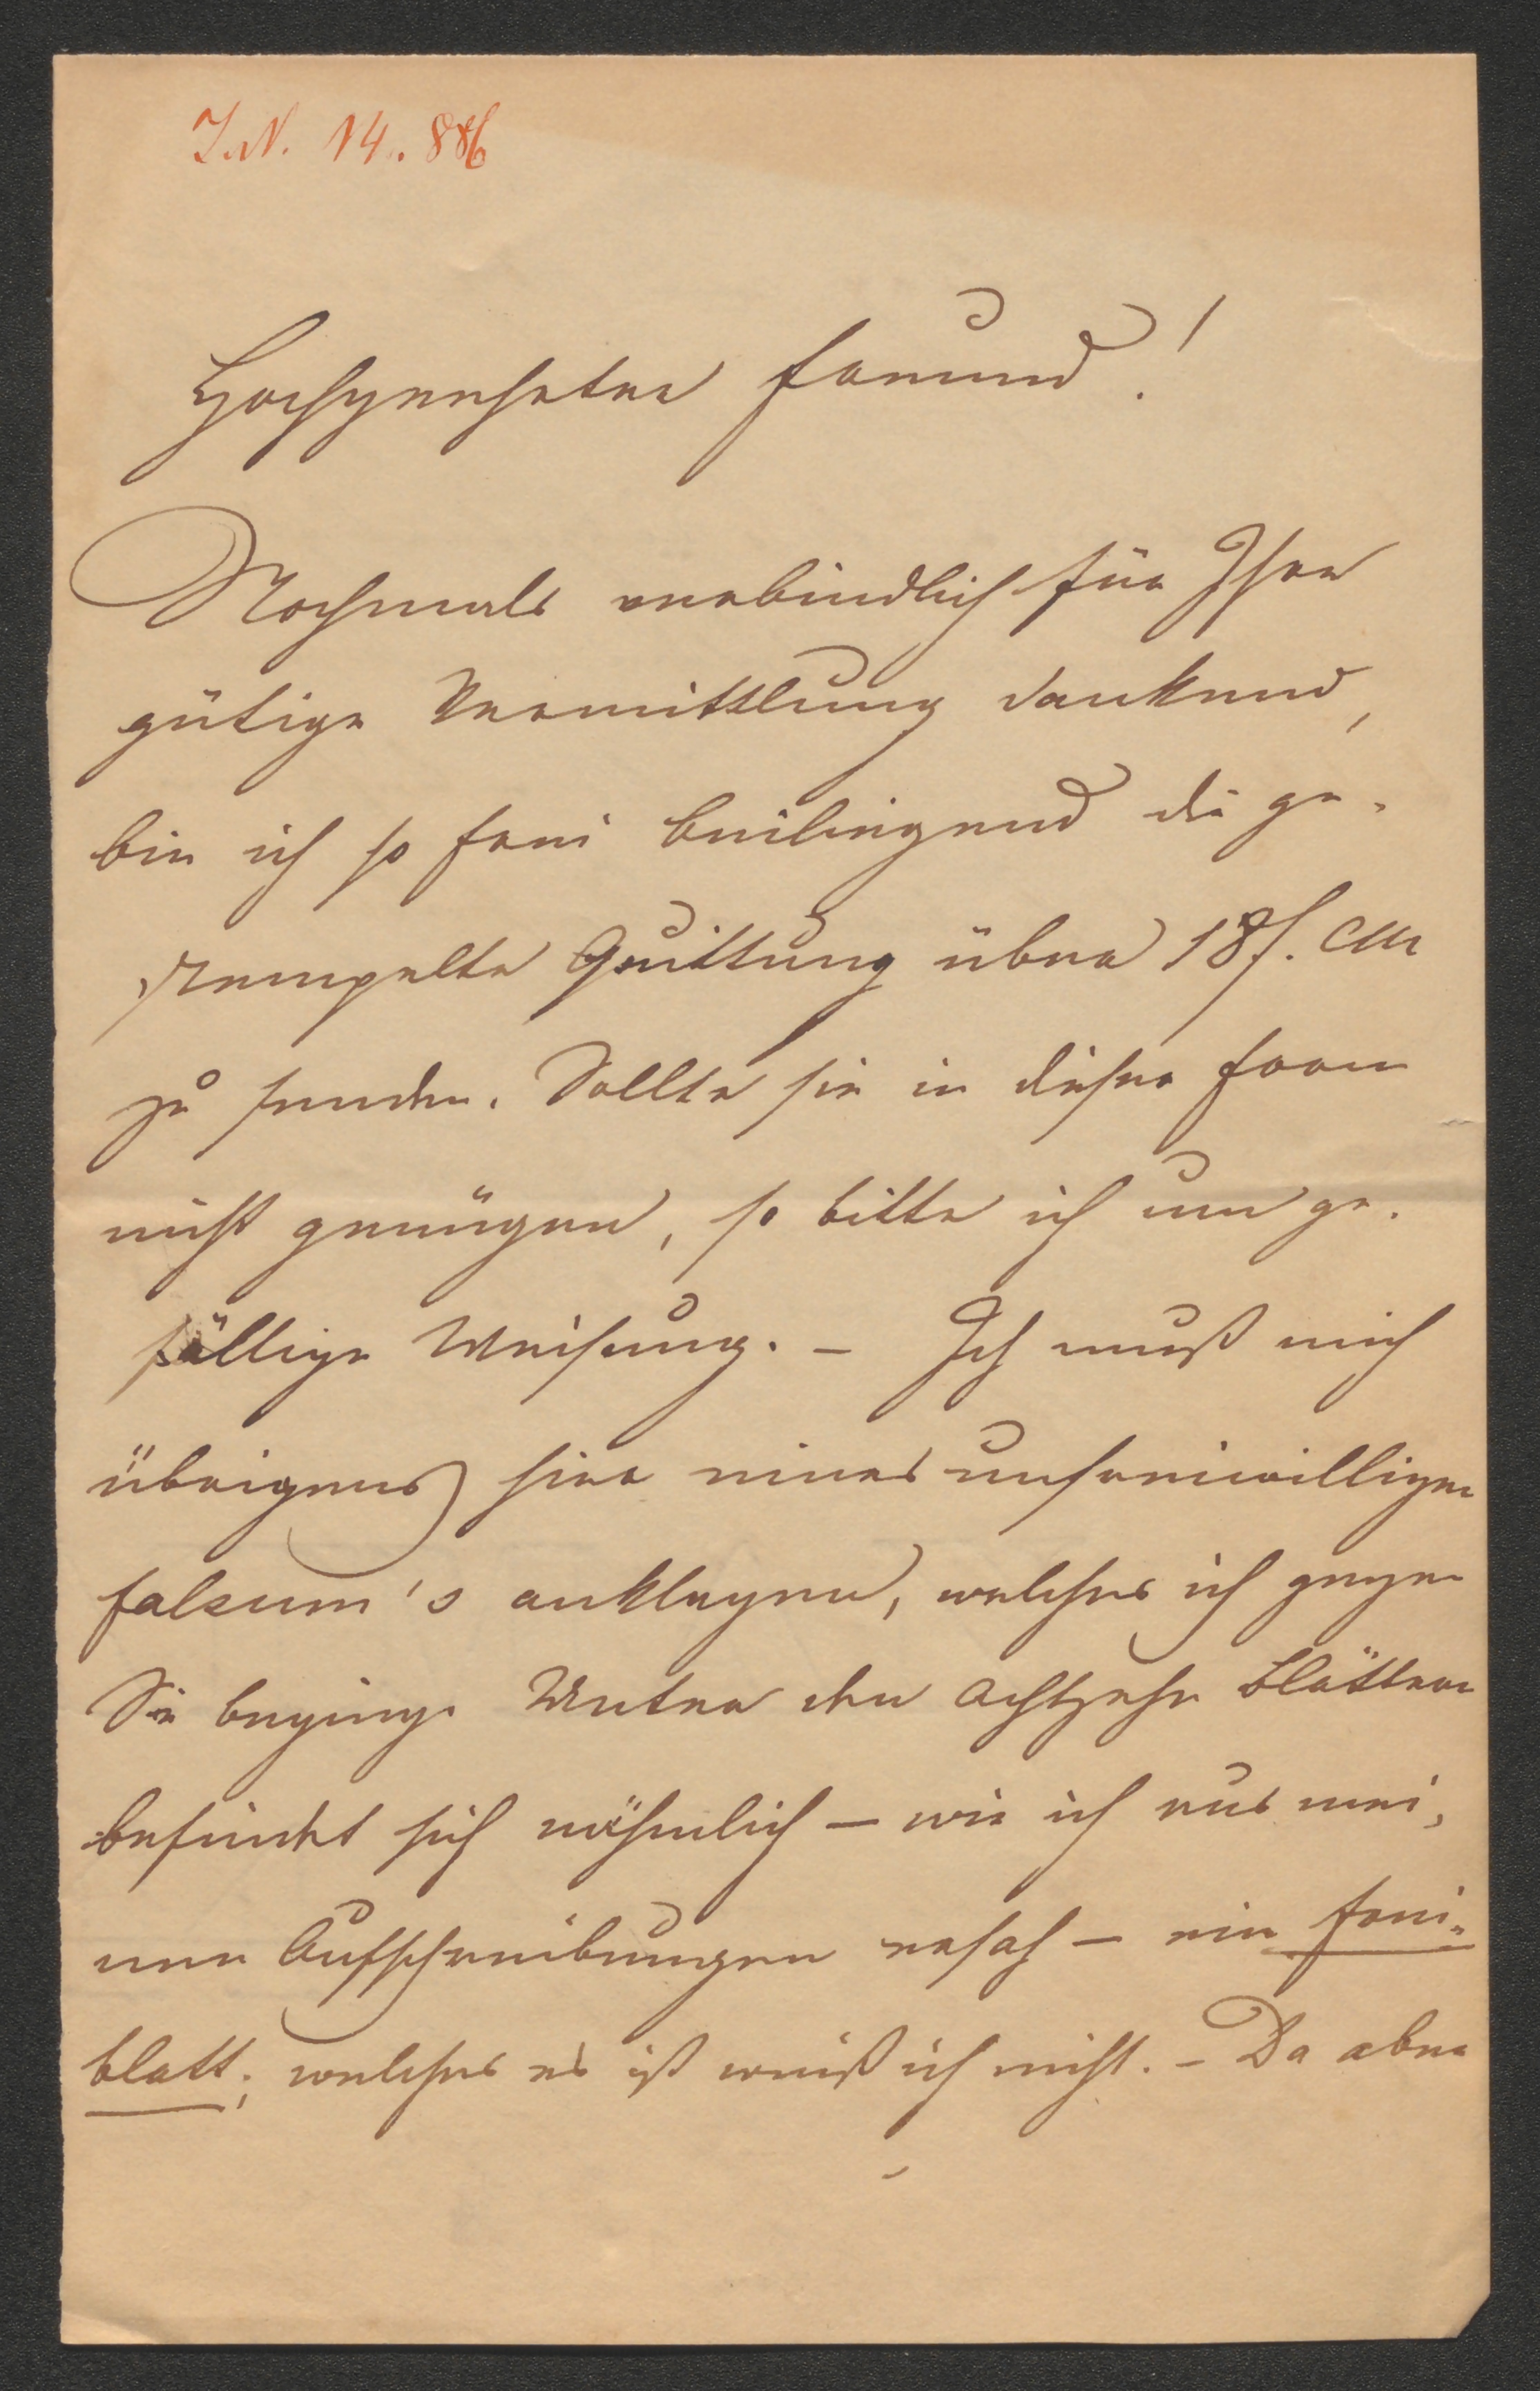 I.N. 14.886
Hochgeehrter Freund!
Nochmals verbindlich für Ihre
gütige Vermittlung dankend,
bin ich so frei beiliegend die ge-
stempelte Quittung über 18 f. CM
zu senden. Sollte sie in dieser Form
nicht genügen, so bitte ich um ge-
fällige Weisung. – Ich muß mich
übrigens hier eines unfreiwilligen
Falsum's anklagen, welches ich gegen
Sie beging. Unter den achtzehn Blättern
befindet sich nähmlich – wie ich aus mei-
nen Aufschreibungen ersah – ein Frei-
blatt; welches es ist weiß ich nicht. – Da aber